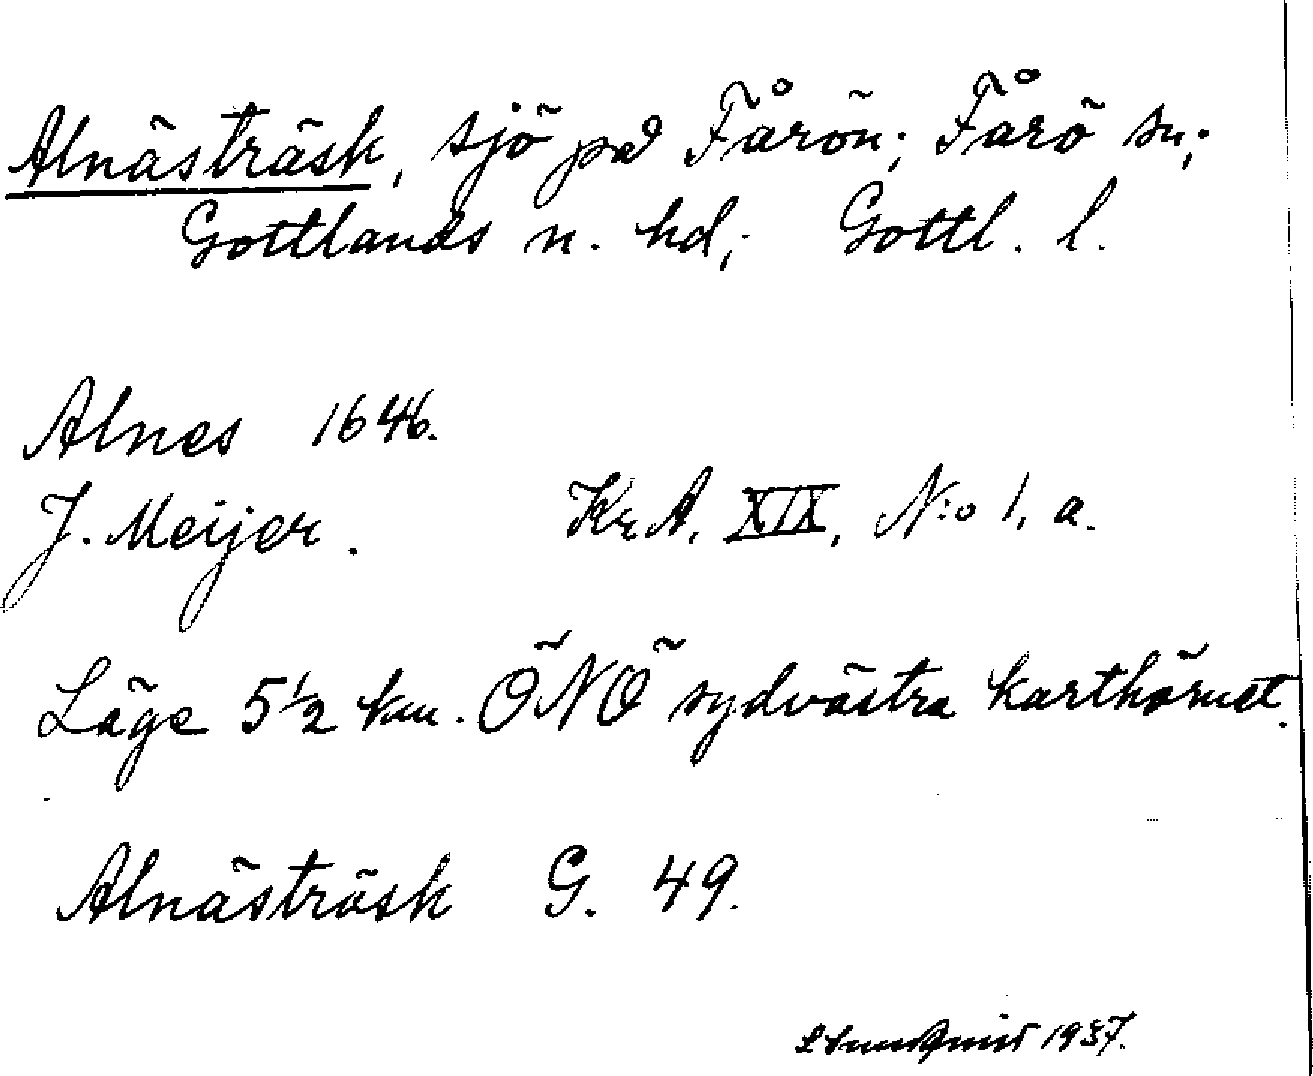 Alnästräsk, sjö på Fårön; Fårö sn;
Gottlands n. hd; Gottl. l.
Alnes 1646.
J. Meijer. Kr. A. XIX, N:o 1, a.
Läge 5 1/2 km. ÖNÖ sydvästra karthörnet.
Alnästräsk G. 49.
1937.